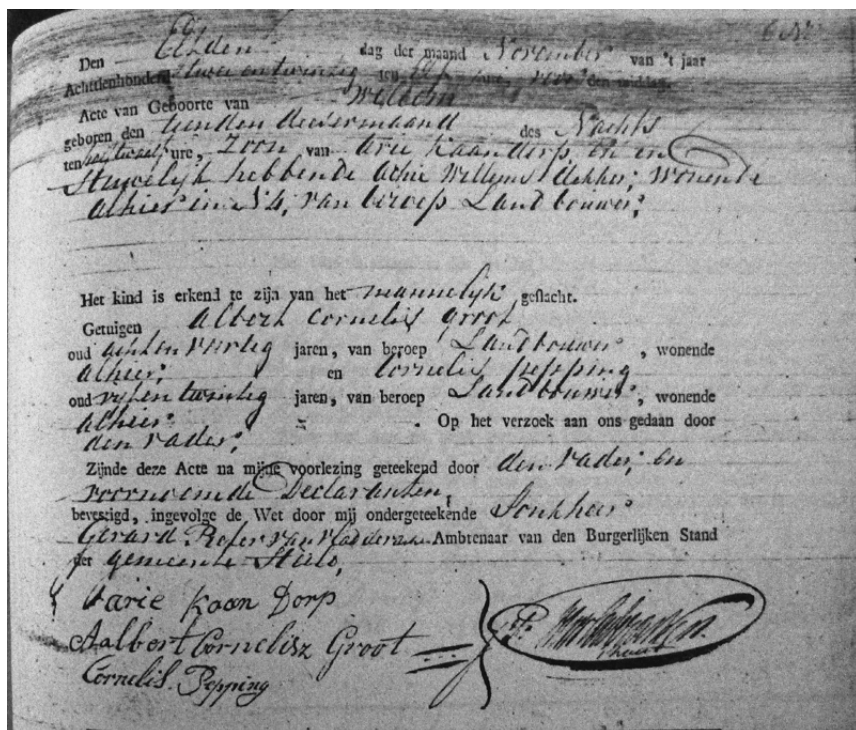 Den Elfden dag der maand November van 't jaar
Achttienhonderd twee en twintig ten elf ure, voor den middag.
Acte van Geboorte van Willem
geboren den tienden deesermaand des Nachts
ten half twaalf ure, Zoon van Arie Kaandorp, en en
Huwelijk hebbende Achie Willems dekker; wonende
alhier in N 4, van beroep Landbouwer;
Het kind is erkend te zijn van het mannelyk geslacht.
Getuigen albert cornelis groot,
oud achten veertig jaren, van beroep Landbouwer, wonende
alhier; en Cornelis pepping
oud vyfen twintig jaren, van beroep Landbouwer, wonende
alhier = . Op het verzoek aan ons gedaan door
den vader;
Zijnde deze Acte na mijne voorlezing geteekend door den vader, en
voornoemde Declaranten,
bevestigd, ingevolge de Wet door mij ondergeteekende Jonkheer
Gerard Ambtenaar van den Burgerlijken Stand
der gemeente
Aarie Kaan Dorp
Aalbert Cornelisz Groot
Cornelis. Pepping